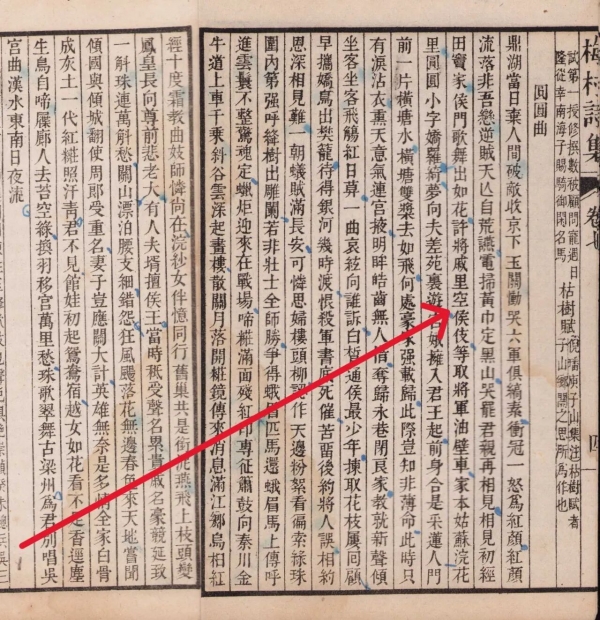 梅村詩集 卷七 四
試第一授修撰數被顧問寵遇日
隆從幸南海子賜騎御閑名馬
枯樹賦
倪璠庾子山集注枯樹賦者
子山鄉關之思所為作也
圓圓曲
鼎湖當日棄人間破敵收京下玉關慟哭六軍俱縞素衝冠一怒為紅顏紅顏
流落非吾戀逆賊天亾自荒讌電掃黃巾定黑山哭罷君親再相見相見初經
田竇家侯門歌舞出如花許將戚里空侯伎等取將軍油壁車家本姑蘇浣花
里圓圓小字嬌羅綺夢向夫差苑裏遊宮娥擁入君王起前身合是采蓮人門
前一片橫塘水橫塘雙槳去如飛何處豪家强載歸此際豈知非薄命此時只
有淚沾衣熏天意氣連宮掖明眸皓齒無人惜奪歸永巷閉良家教就新聲傾
坐客坐客飛觴紅日莫一曲哀絃向誰訴白皙通侯最少年揀取花枝屢回顧
早攜嬌鳥出樊籠待得銀河幾時渡恨殺軍書底死催苦留後約將人誤相約
恩深相見難一朝蟻賊滿長安可憐思婦樓頭柳認作天邊粉絮看偏索綠珠
圍內第强呼絳樹出雕闌若非壯士全師勝爭得蛾眉匹馬還蛾眉馬上傳呼
進雲鬟不整驚魂定蠟炬迎來在戰場啼粧滿面殘紅印專征蕭鼓向秦川金
牛道上車千乘斜谷雲深起畫樓散關月落開粧鏡傳來消息滿江鄉烏桕紅
經十度霜教曲妓師憐尚在浣紗女伴憶同行舊巢共是銜泥燕飛上枝頭變
鳳皇長向尊前悲老大有人夫壻擅侯王當時秖受聲名累貴戚名豪競延致
一斛珠連萬斛愁關山漂泊腰支細錯怨狂風颺落花無邊春色來天地嘗聞
傾國與傾城翻使周郎受重名妻子豈應關大計英雄無奈是多情全家白骨
成灰土一代紅粧照汗青君不見館娃初起鴛鴦宿越女如花看不足香逕塵
生鳥自啼屧廊人去苔空綠換羽移宮萬里愁珠歌翠舞古梁州為君別唱吳
宮曲漢水東南日夜流